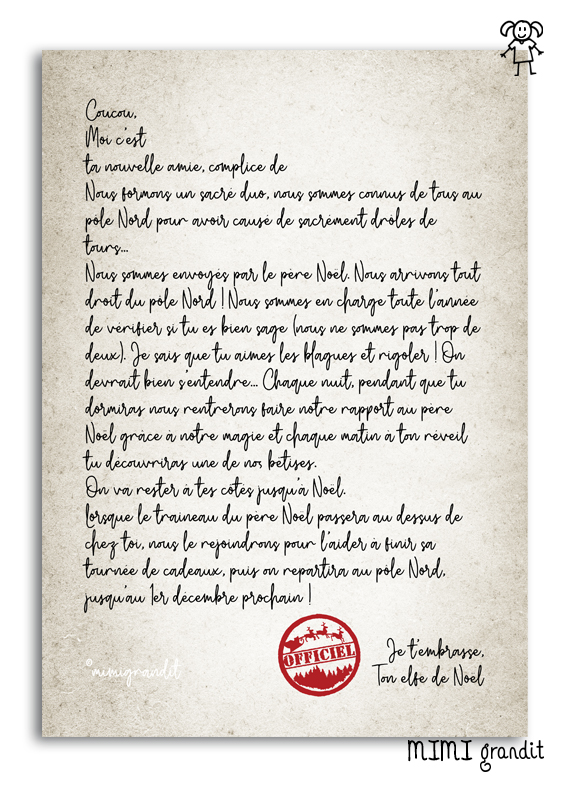 Coucou,
Moi c'est
ta nouvelle amie, complice de
Nous formons un sacré duo, nous sommes connus de tous au
pôle Nord pour avoir causé de sacrément drôles de
tours...
Nous sommes envoyés par le père Noël. Nous arrivons tout
droit du pôle Nord ! Nous sommes en charge toute l'année
de vérifier si tu es bien sage (nous ne sommes pas trop de
deux). Je sais que tu aimes les blagues et rigoler ! On
devrait bien s'entendre... Chaque nuit, pendant que tu
dormiras nous rentrerons faire notre rapport au père
Noël grâce à notre magie et chaque matin à ton réveil
tu découvriras une de nos bêtises.
On va rester à tes côtés jusqu'à Noël.
Lorsque le traineau du père Noël passera au dessus de
chez toi, nous le rejoindrons pour l'aider à finir sa
tournée de cadeaux, puis on repartira au pôle Nord,
jusqu'au 1er décembre prochain !
OFFICIEL
Je t'embrasse,
Ton elfe de Noël
©mimigrandit
MIMI grandit